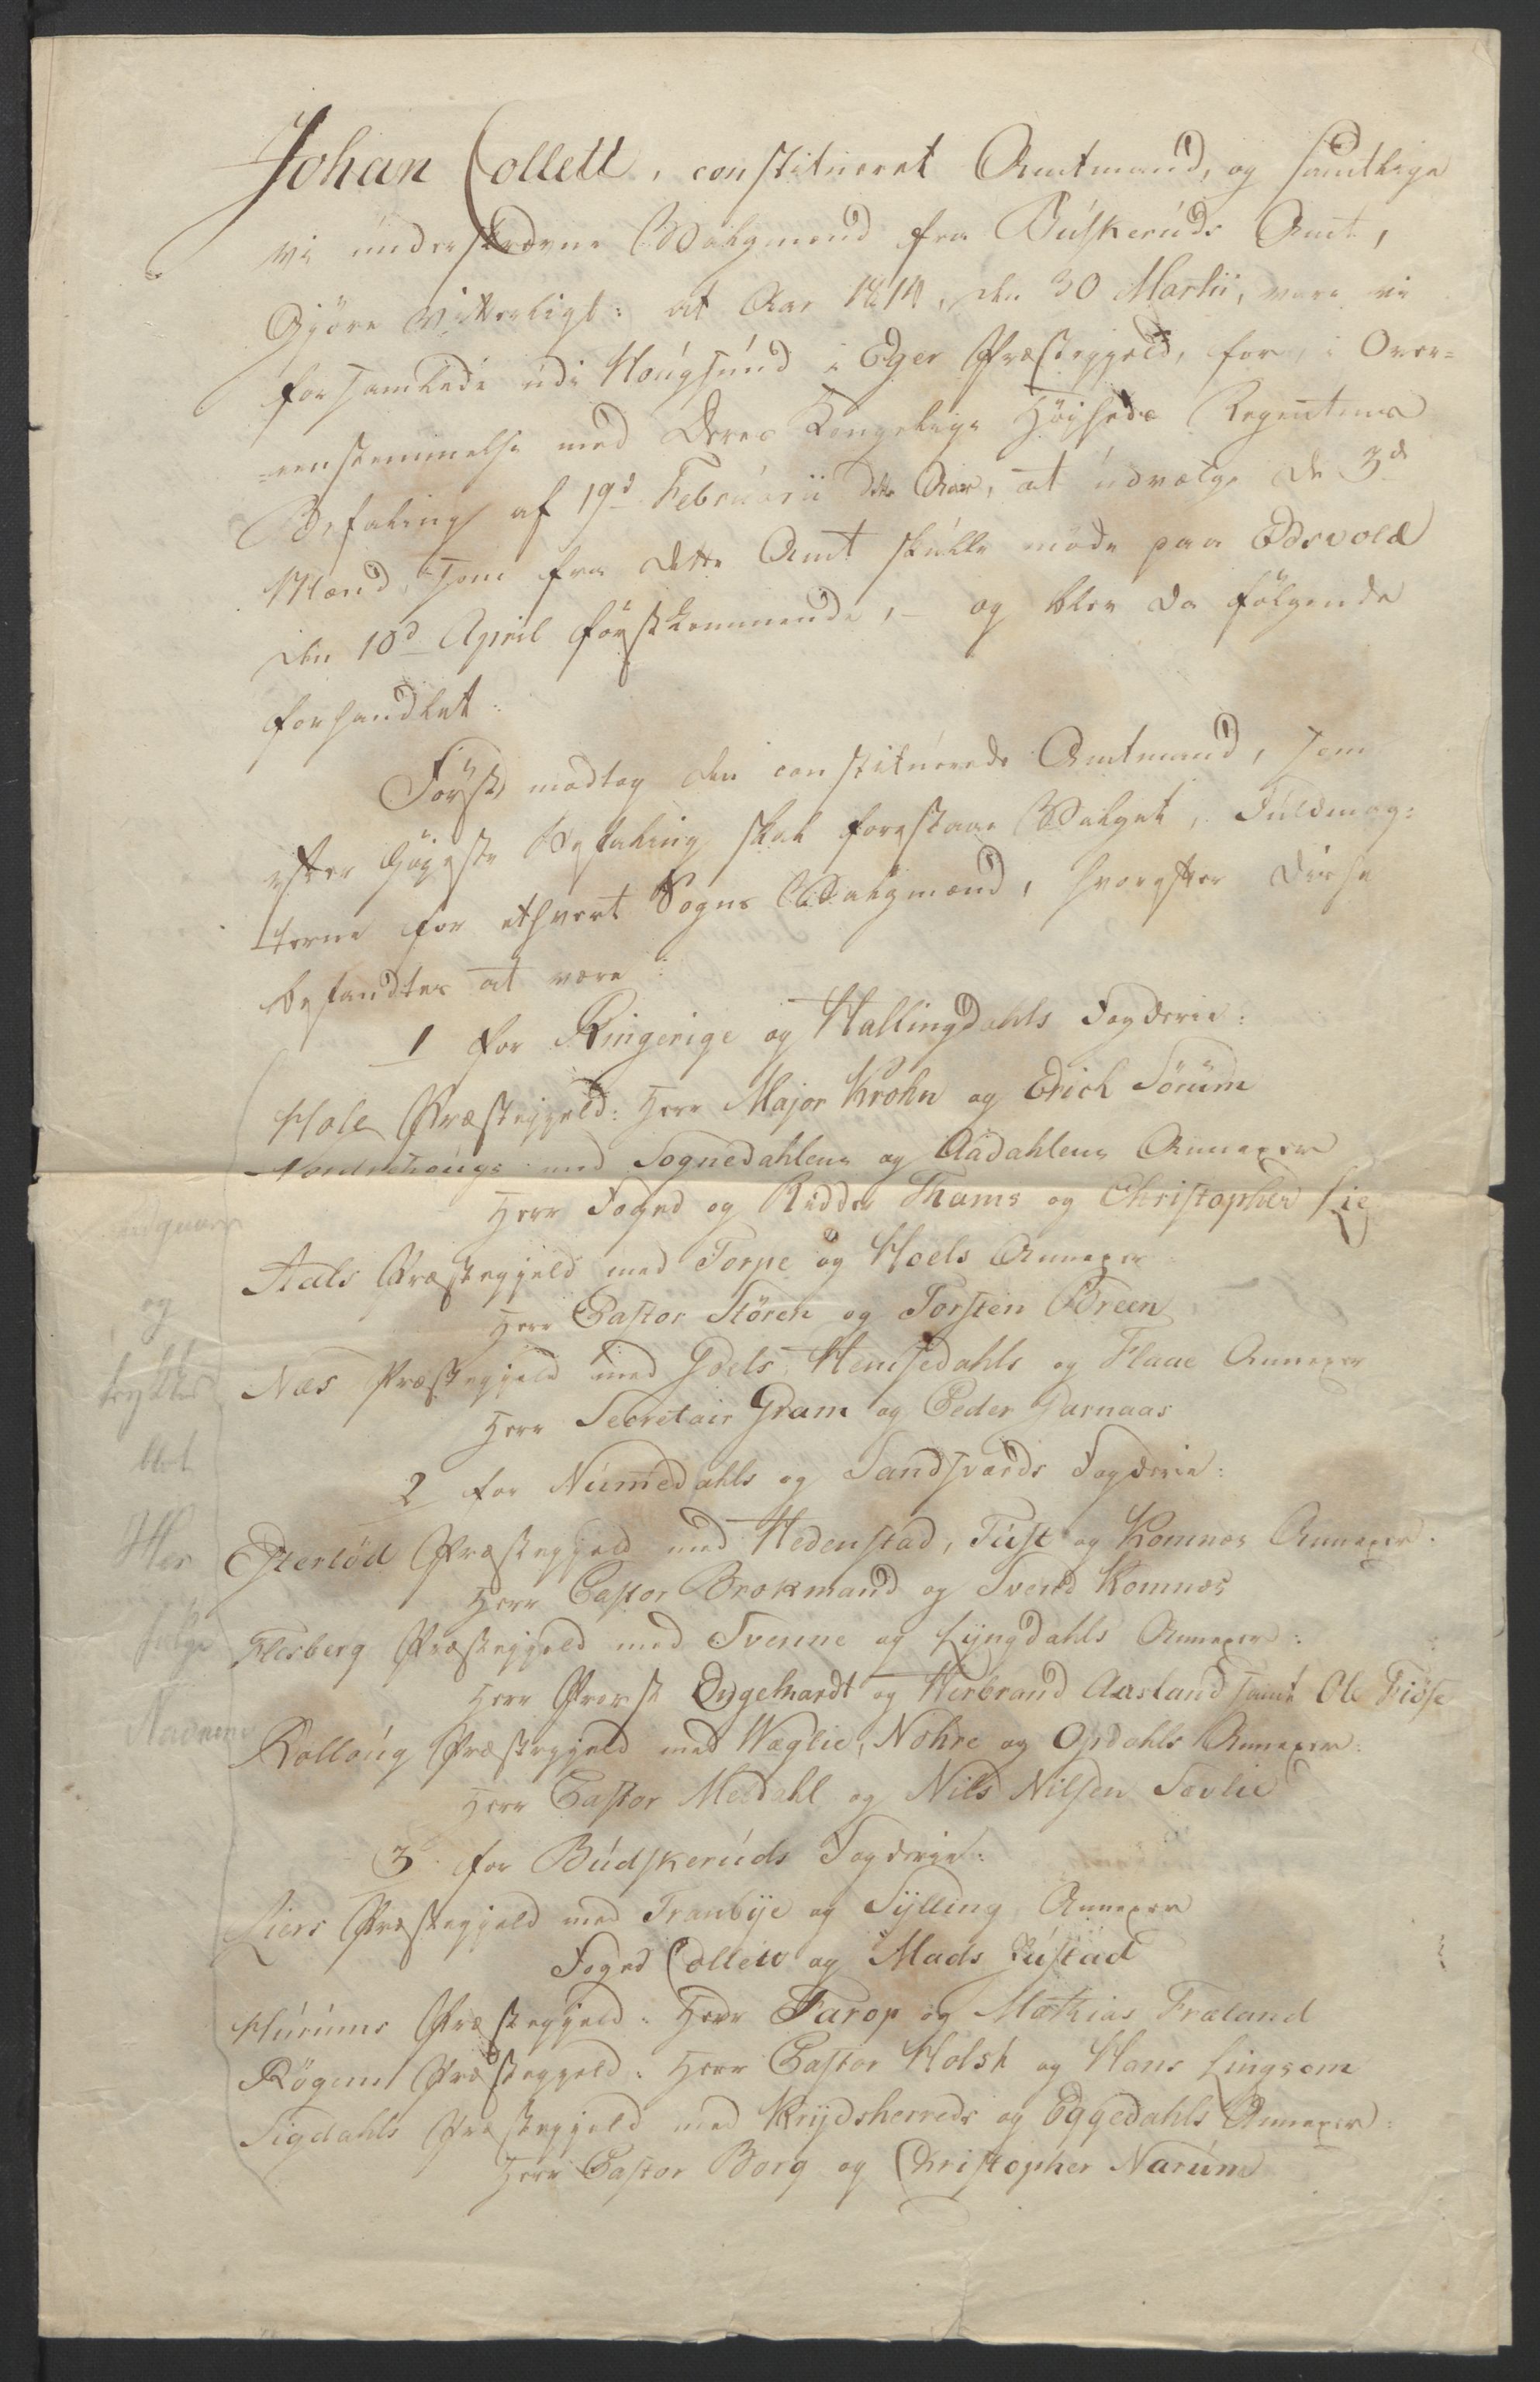 Johan Collett, constitueret Amtmand, og samtlige
vi underskrevne Valgmænd fra Buskeruds Amt,
Gjöre Vitterligt: at Aar 1814, den 30 Martii, vare vi
forsamlede udi Hougsund i Eger Præstegjeld, for, i Over=
=eenstemmelse med Deres Kongelige Höiheds Regentens
Befaling af 19d Februarii dette Aar, at udvælge de 3de
Mænd, som fra dette Amt skulle möde paa Edsvold
den 10d April förstkommende, – og blev da fölgende
forhandlet:
Först modtog den constituerede Amtmand, som
efter höyeste Befaling skal forestaae Valget, Fuldmag=
terne for ethvert Sogns Valgmænd, hvorefter disse
befandtes at være:
1 for Ringerige og Hallingdahls Fogderie:
Hole Præstegjeld: Herr Major Krohn og Erich Sörum
Nordrehougs med Sognedahlens og Aadahlens Annexer
Herr Foged og Ridder Thams og Christopher Lie
Aals Præstegjeld med Torpe og Hoels Annexer
Herr Pastor Stören og Torsten Breen
Næs Præstegjeld med Goels, Hemsedahls og Flaae Annexer
Herr Secretair Gram og Peder Garnaas
2 for Numedahls og Sandsværds Fogderie:
Efterlöd Præstegjeld med Hedenstad, Tust og Komnes Annexer.
Herr Pastor Brokmand og Svend Komnæs
Flesberg Præstegjeld med Svenne og Lyngdahls Annexer:
Herr Provst Engelhardt og Herbrand Aasland samt Ole Fiöse
Rolloug Præstegjeld med Wæglie, Nohre og Opdahls Annexer:
Herr Pastor Meldahl og Nils Nilsen Sevlie
3 for Budskeruds Fogderie:
Liers Præstegjeld med Tranbye og Sylling Annexer
Foged Collett og Mads Justad
Hurums Præstegjeld: Herr Farop og Mathias Fraland
Rögens Præstegjeld: Herr Pastor Holst og Hans Lingsom
Sigdahls Præstegjeld med Krydsherreds og Eggedahls Annexer:
Herr Pastor Borg og Christopher Narum
og
trykkes
blot
Her
fölge
Navnene